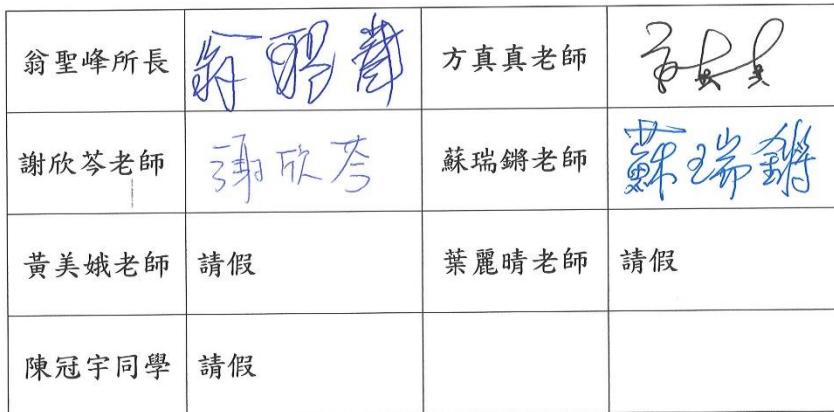 翁聖峰所長 翁聖峰 方真真老師 方真真
謝欣芩老師 謝欣芩 蘇瑞鏘老師 蘇瑞鏘
黃美娥老師 請假 葉麗晴老師 請假
陳冠宇同學 請假